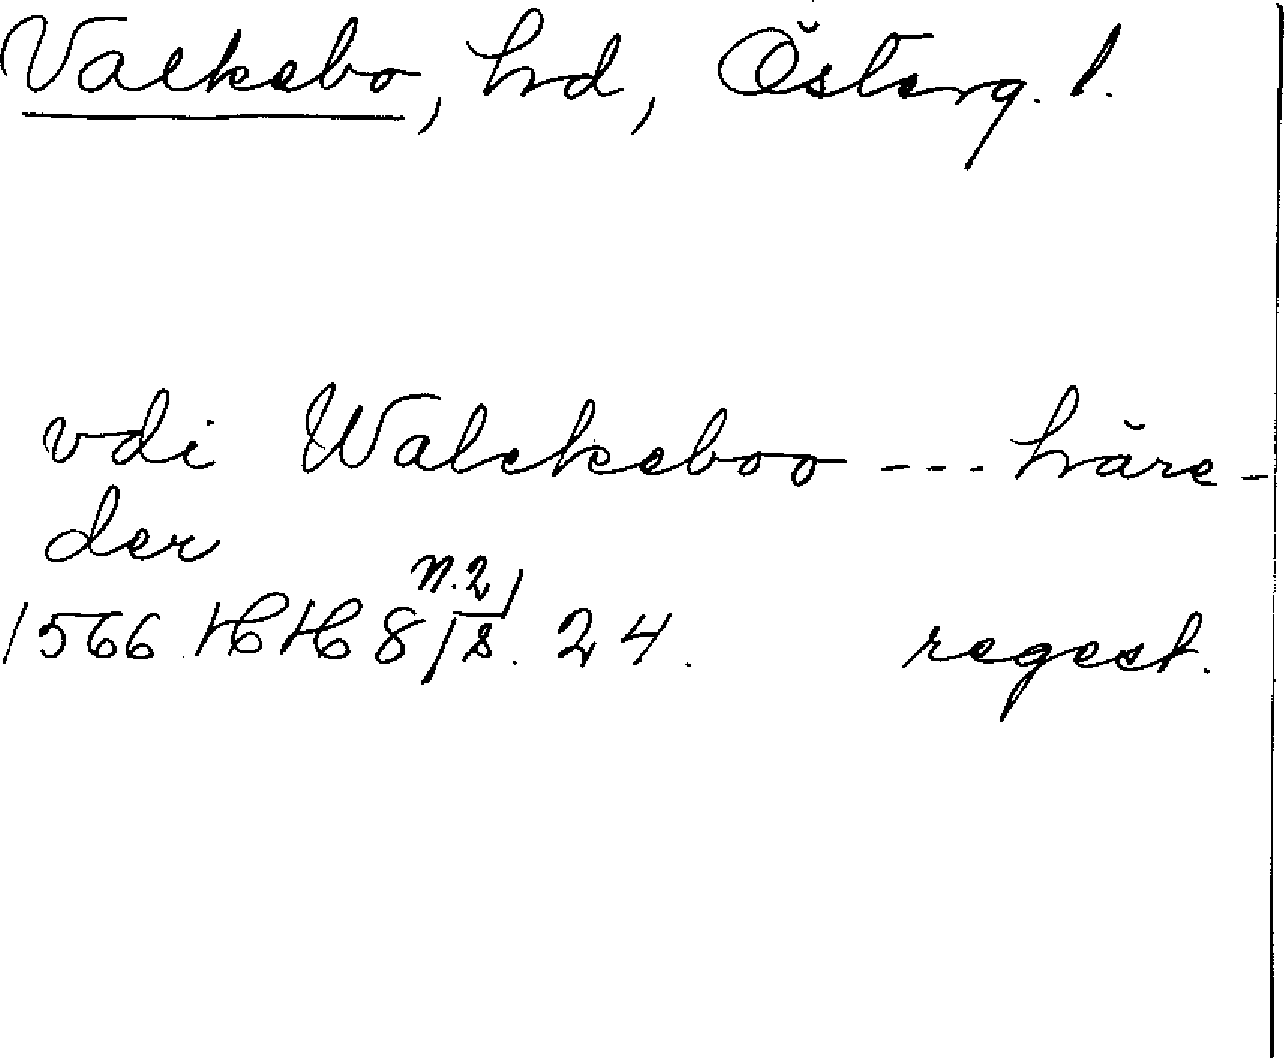 Valkebo, hd, Österg. l.
vdi Walckeboo --- häre-
der
1566 HH 8 n.2/ s. 24. regest.